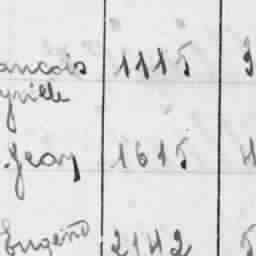 ancois 1115
yrille
Jean 1615
Eugene 2142